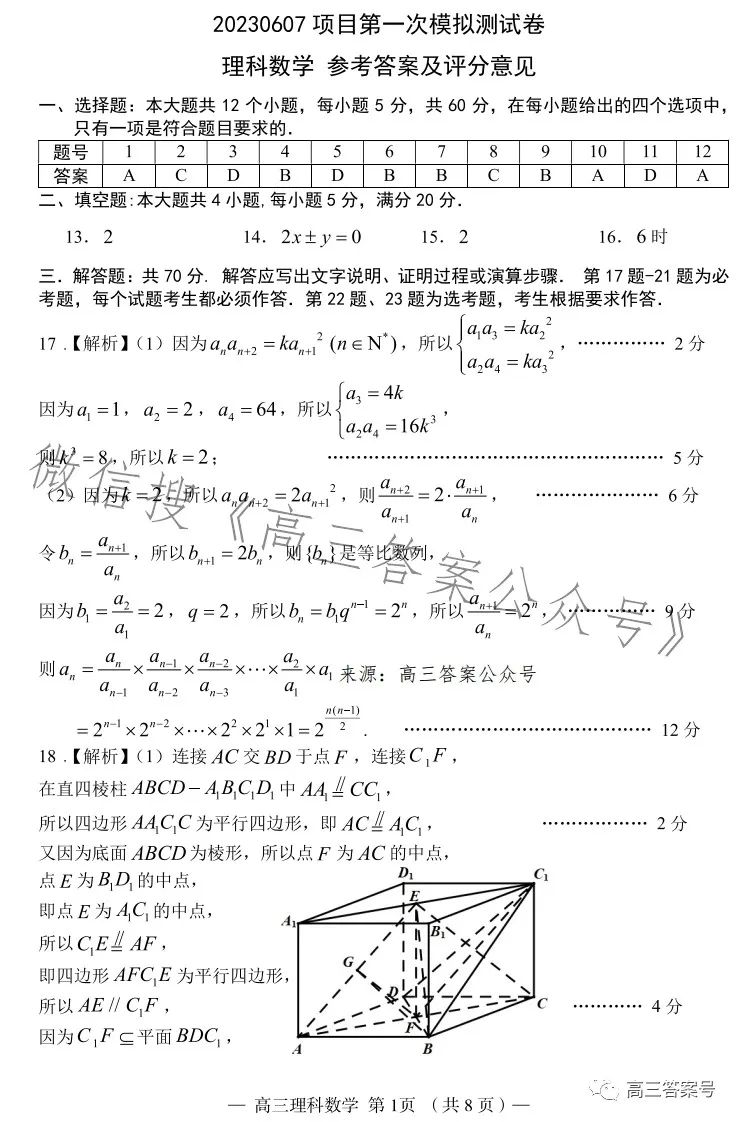 20230607 项目第一次模拟测试卷
理科数学 参考答案及评分意见
一、选择题：本大题共 12 个小题，每小题 5 分，共 60 分，在每小题给出的四个选项中，
只有一项是符合题目要求的．
题号 1 2 3 4 5 6 7 8 9 10 11 12
答案 A C D B D B B C B A D A
二、填空题:本大题共 4 小题,每小题 5 分，满分 20 分．
13．2 14．2x±y=0 15．2 16．6 时
三．解答题：共 70 分．解答应写出文字说明、证明过程或演算步骤． 第 17 题-21 题为必
考题，每个试题考生都必须作答．第 22 题、23 题为选考题，考生根据要求作答．
17．【解析】（1）因为 aₙaₙ₊₂ = kaₙ₊₁² (n∈N*)，所以 { a₁a₃ = ka₂² ； a₂a₄ = ka₃² ，…………… 2 分
因为 a₁ = 1，a₂ = 2，a₄ = 64，所以 { a₃ = 4k ； a₂a₄ = 16k³ ，
则 k³ = 8，所以 k = 2； ……………………………………………… 5 分
（2）因为 k = 2，所以 aₙaₙ₊₂ = 2aₙ₊₁²，则 aₙ₊₂/aₙ₊₁ = 2·aₙ₊₁/aₙ， ………………… 6 分
令 bₙ = aₙ₊₁/aₙ，所以 bₙ₊₁ = 2bₙ，则 {bₙ} 是等比数列，
因为 b₁ = a₂/a₁ = 2，q = 2，所以 bₙ = b₁qⁿ⁻¹ = 2ⁿ，所以 aₙ₊₁/aₙ = 2ⁿ， …………… 9 分
则 aₙ = aₙ/aₙ₋₁ × aₙ₋₁/aₙ₋₂ × aₙ₋₂/aₙ₋₃ ×⋯× a₂/a₁ × a₁ 来源：高三答案公众号
= 2ⁿ⁻¹×2ⁿ⁻²×⋯×2²×2¹×1 = 2^(n(n−1)/2)． ………………………………… 12 分
18．【解析】（1）连接 AC 交 BD 于点 F，连接 C₁F，
在直四棱柱 ABCD－A₁B₁C₁D₁ 中 AA₁∥＝CC₁，
所以四边形 AA₁C₁C 为平行四边形，即 AC∥＝A₁C₁， ……………… 2 分
又因为底面 ABCD 为棱形，所以点 F 为 AC 的中点，
点 E 为 B₁D₁ 的中点，
即点 E 为 A₁C₁ 的中点，
所以 C₁E∥＝AF，
即四边形 AFC₁E 为平行四边形，
所以 AE // C₁F， ………… 4 分
因为 C₁F⊆平面 BDC₁，
D₁
C₁
E
A₁
B₁
G
D
C
F
A
B
微信搜《高三答案公众号》
— 高三理科数学 第1页 （共 8 页）—
高三答案号